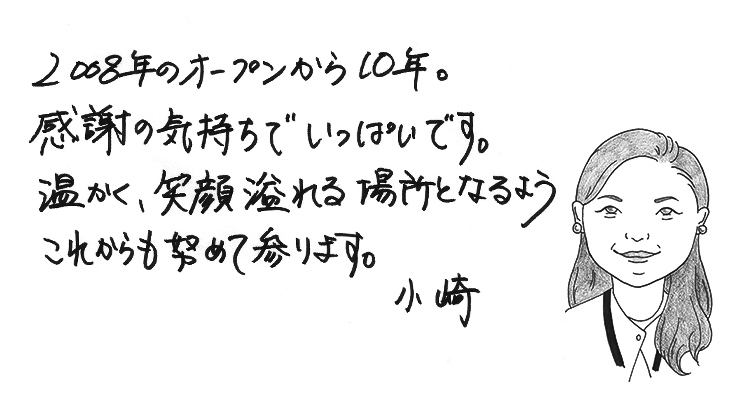 2008年のオープンから10年。
感謝の気持ちでいっぱいです。
温かく、笑顔溢れる場所となるよう
これからも努めて参ります。
小崎